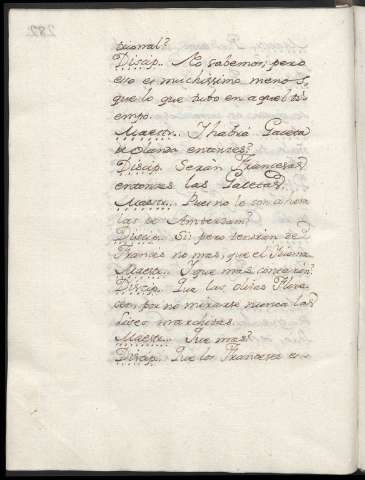 282.
cional?
Discip. No sabemos, pero
eso es muchissimo menos,
que lo que tubo en aquel ti-
empo.
Maestr. I habia Gaceta
de Olanda entonzes?
Discip. Serán Francesas
entonzes las Gacetas.
Maestr. Pues no lo son ahora
las de Amsterdam?
Discip. Si; pero tenian de
Frances no mas, que el Idioma.
Maestr. I que mas
Discip. Que las Lises Flore-
por no mirarse nunca las
Lises marchitas.
Maestr. Que mas?
Discip. Que los Franceses es-